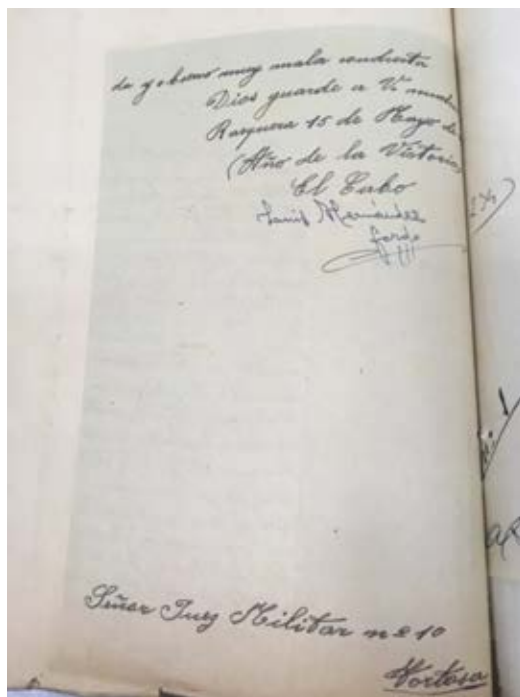 de gobierno muy mala conducta
Dios guarde a V. mucho
Rasquera 15 de Mayo de
(Año de la Victoria
El Cabo
Luis Hernández
Señor Juez Militar nº 10
Tortosa